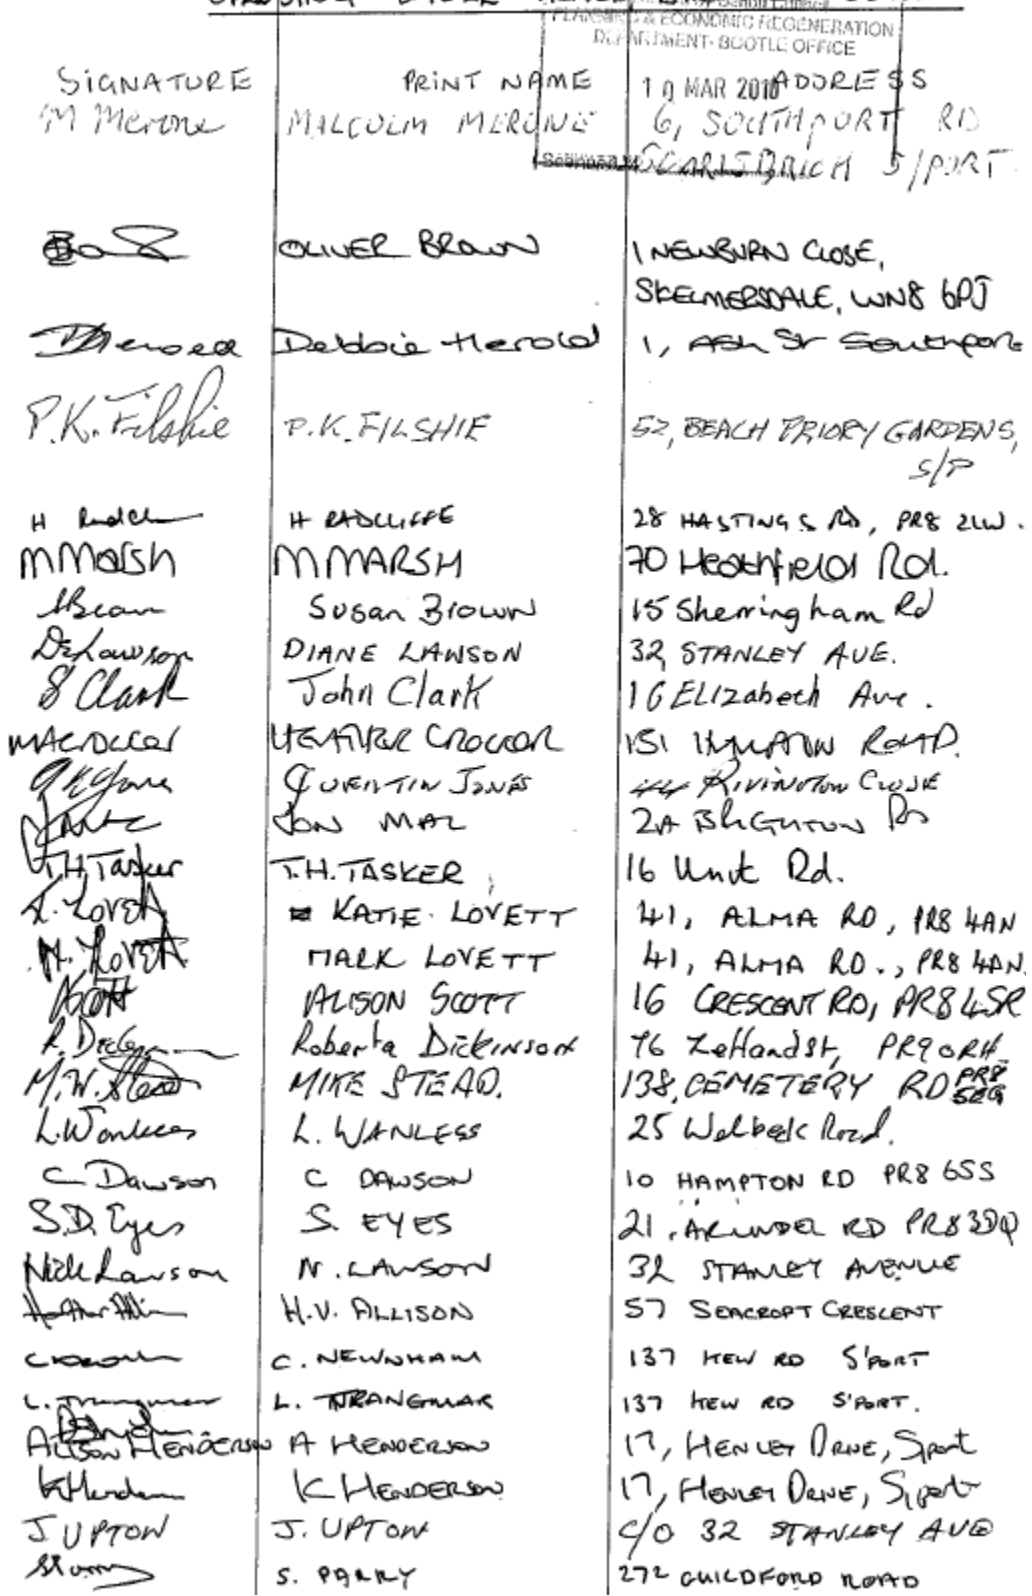 PLANNING & ECONOMIC REGENERATION
DEPARTMENT- BOOTLE OFFICE
SIGNATURE PRINT NAME 10 MAR 2010 ADDRESS
M Merone MALCOLM MERONE 6, SOUTHPORT RD
SCARISBRICH S/PORT
OLIVER BROWN 1 NEWBURN CLOSE,
SKELMERSDALE, WN8 6PJ
Debbie Herold 1, Ash St Southport
P.K. Filshie P.K. FILSHIE 52, BEACH PRIORY GARDENS,
S/P
H H RADCLIFFE 28 HASTINGS RD, PR8 2LW.
M MARSH M MARSH 70 Heathfield Rd.
Susan Brown 15 Sherringham Rd
D Lawson DIANE LAWSON 32, STANLEY AVE.
Clark John Clark 16 Elizabeth Ave.
HEATHER CROCKER 151 ROAD.
QUENTIN JONES 44 RIVINGTON CLOSE
JON 2A BRIGHTON RD
T.H.Tasker T.H.TASKER 16 Unit Rd.
K. Lovett KATIE LOVETT 41, ALMA RD, PR8 4AN
M. Lovett MARK LOVETT 41, ALMA RD., PR8 4AN.
AScott ALISON SCOTT 16 CRESCENT RD, PR8 4SR
R. Roberta Dickinson 76 Zetland St, PR9 0RH
M.W. Stead MIKE STEAD. 138, CEMETERY RD PR8
5EG
L. Wanless L. WANLESS 25 Welbeck Road.
C Dawson C DAWSON 10 HAMPTON RD PR8 6SS
S.D. Eyes S. EYES 21, ARUNDEL RD PR8 3DQ
Nick Lawson N. LAWSON 32 STANLEY AVENUE
H.V. ALLISON 57 SEACROFT CRESCENT
C. NEWNHAM 137 KEW RD S'PORT
L. L. TRANGMAR 137 KEW RD S'PORT.
ALISON HENDERSON A HENDERSON 17, HENLEY DRIVE, Sport
K HENDERSON 17, HENLEY DRIVE, Sport
J UPTON J. UPTON C/O 32 STANLEY AVE
S. PARRY 272 GUILDFORD ROAD